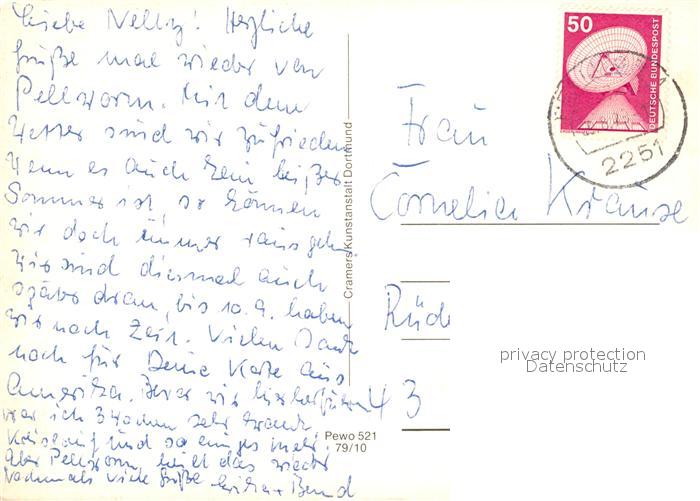 Liebe Nelly! Herzliche
Grüße mal wieder von
Pellworm. Mit dem
Wetter sind wir zufrieden
wenn es auch kein heißer
Sommer ist, so können
wir doch immer raus gehen.
Wir sind diesmal auch
später dran, bis 10.9. haben
wir noch Zeit. Vielen Dank
noch für Deine Karte aus
Amerika. Bevor wir hierherfuhren
war ich 3 Wochen sehr krank
Kreislauf und so einiges mehr.
Aber Pellworm heilt das wieder
Nochmals viele Grüße + Bernd
Cramers Kunstanstalt Dortmund
Pewo 521
79/10
50
DEUTSCHE BUNDESPOST
2251
Frau
Cornelia Krause
Rüde
43
privacy protection
Datenschutz